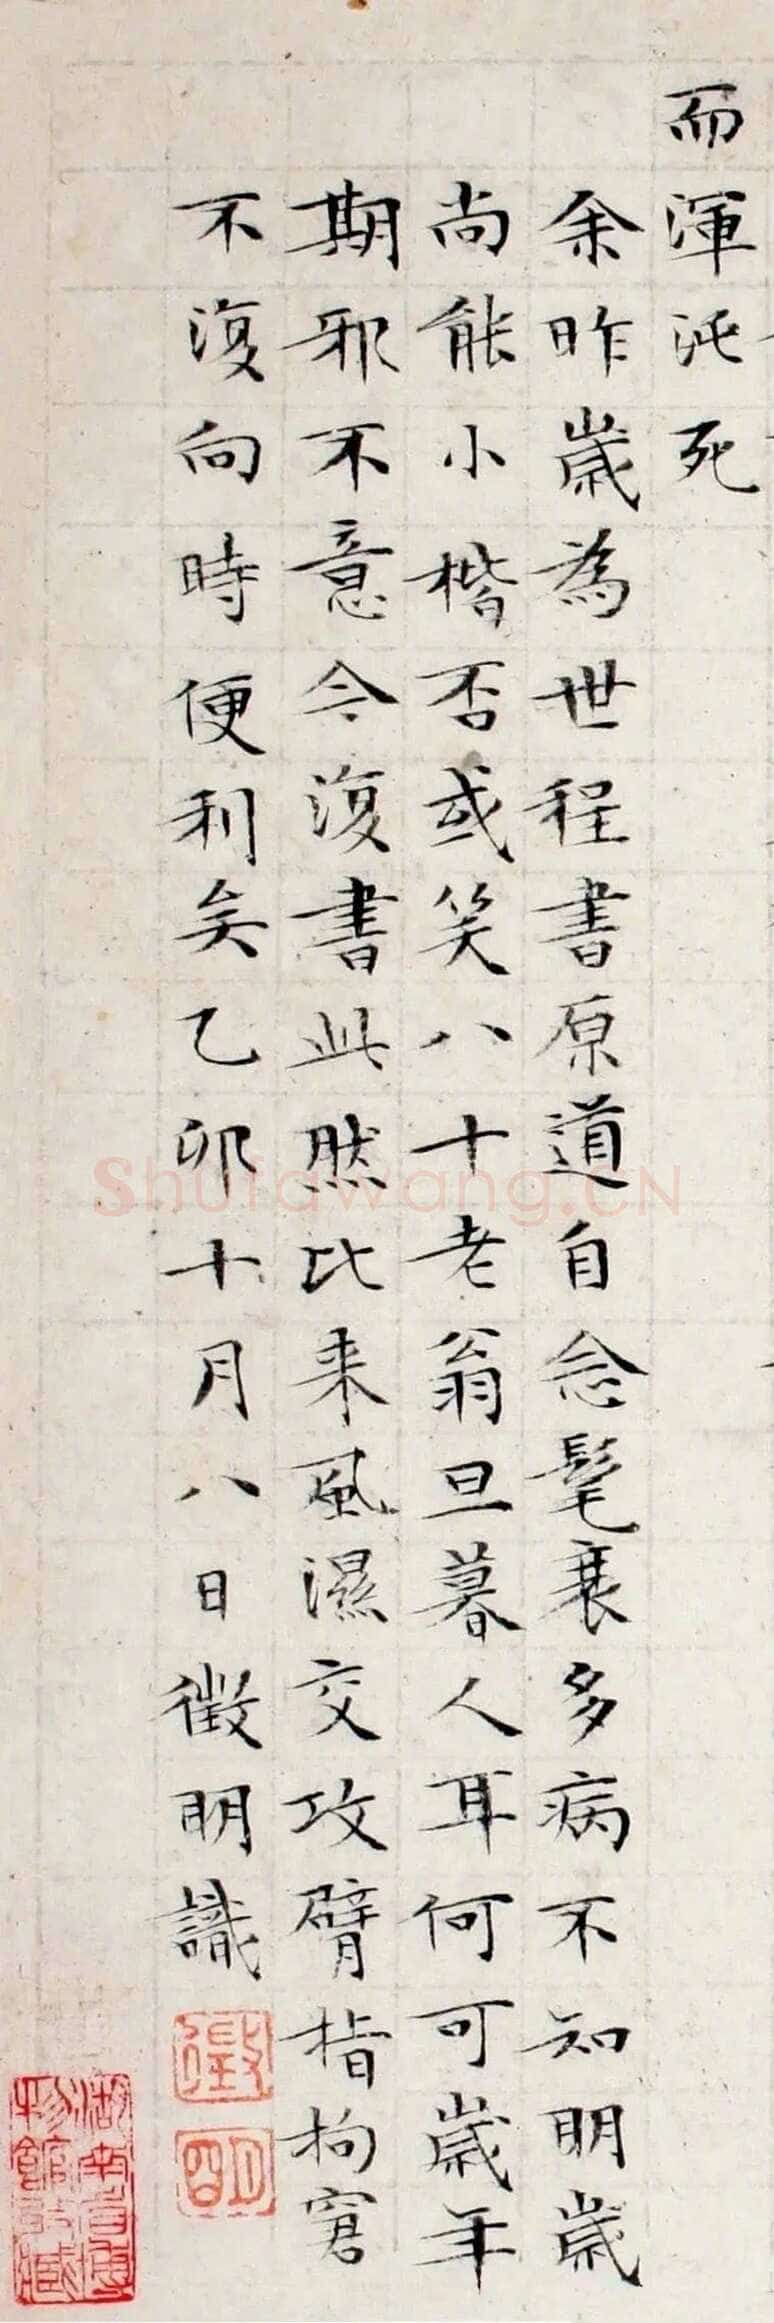 而渾沌死
余昨歲為世程書原道自念髦衰多病不知明歲
尚能小楷否或笑八十老翁旦暮人耳何可歲年
期邪不意今復書此然比来風濕交攻臂指拘窘
不復向時便利矣乙卯十月八日徵明識
徵
明
湖南省博
物館收藏
Shufawang.CN